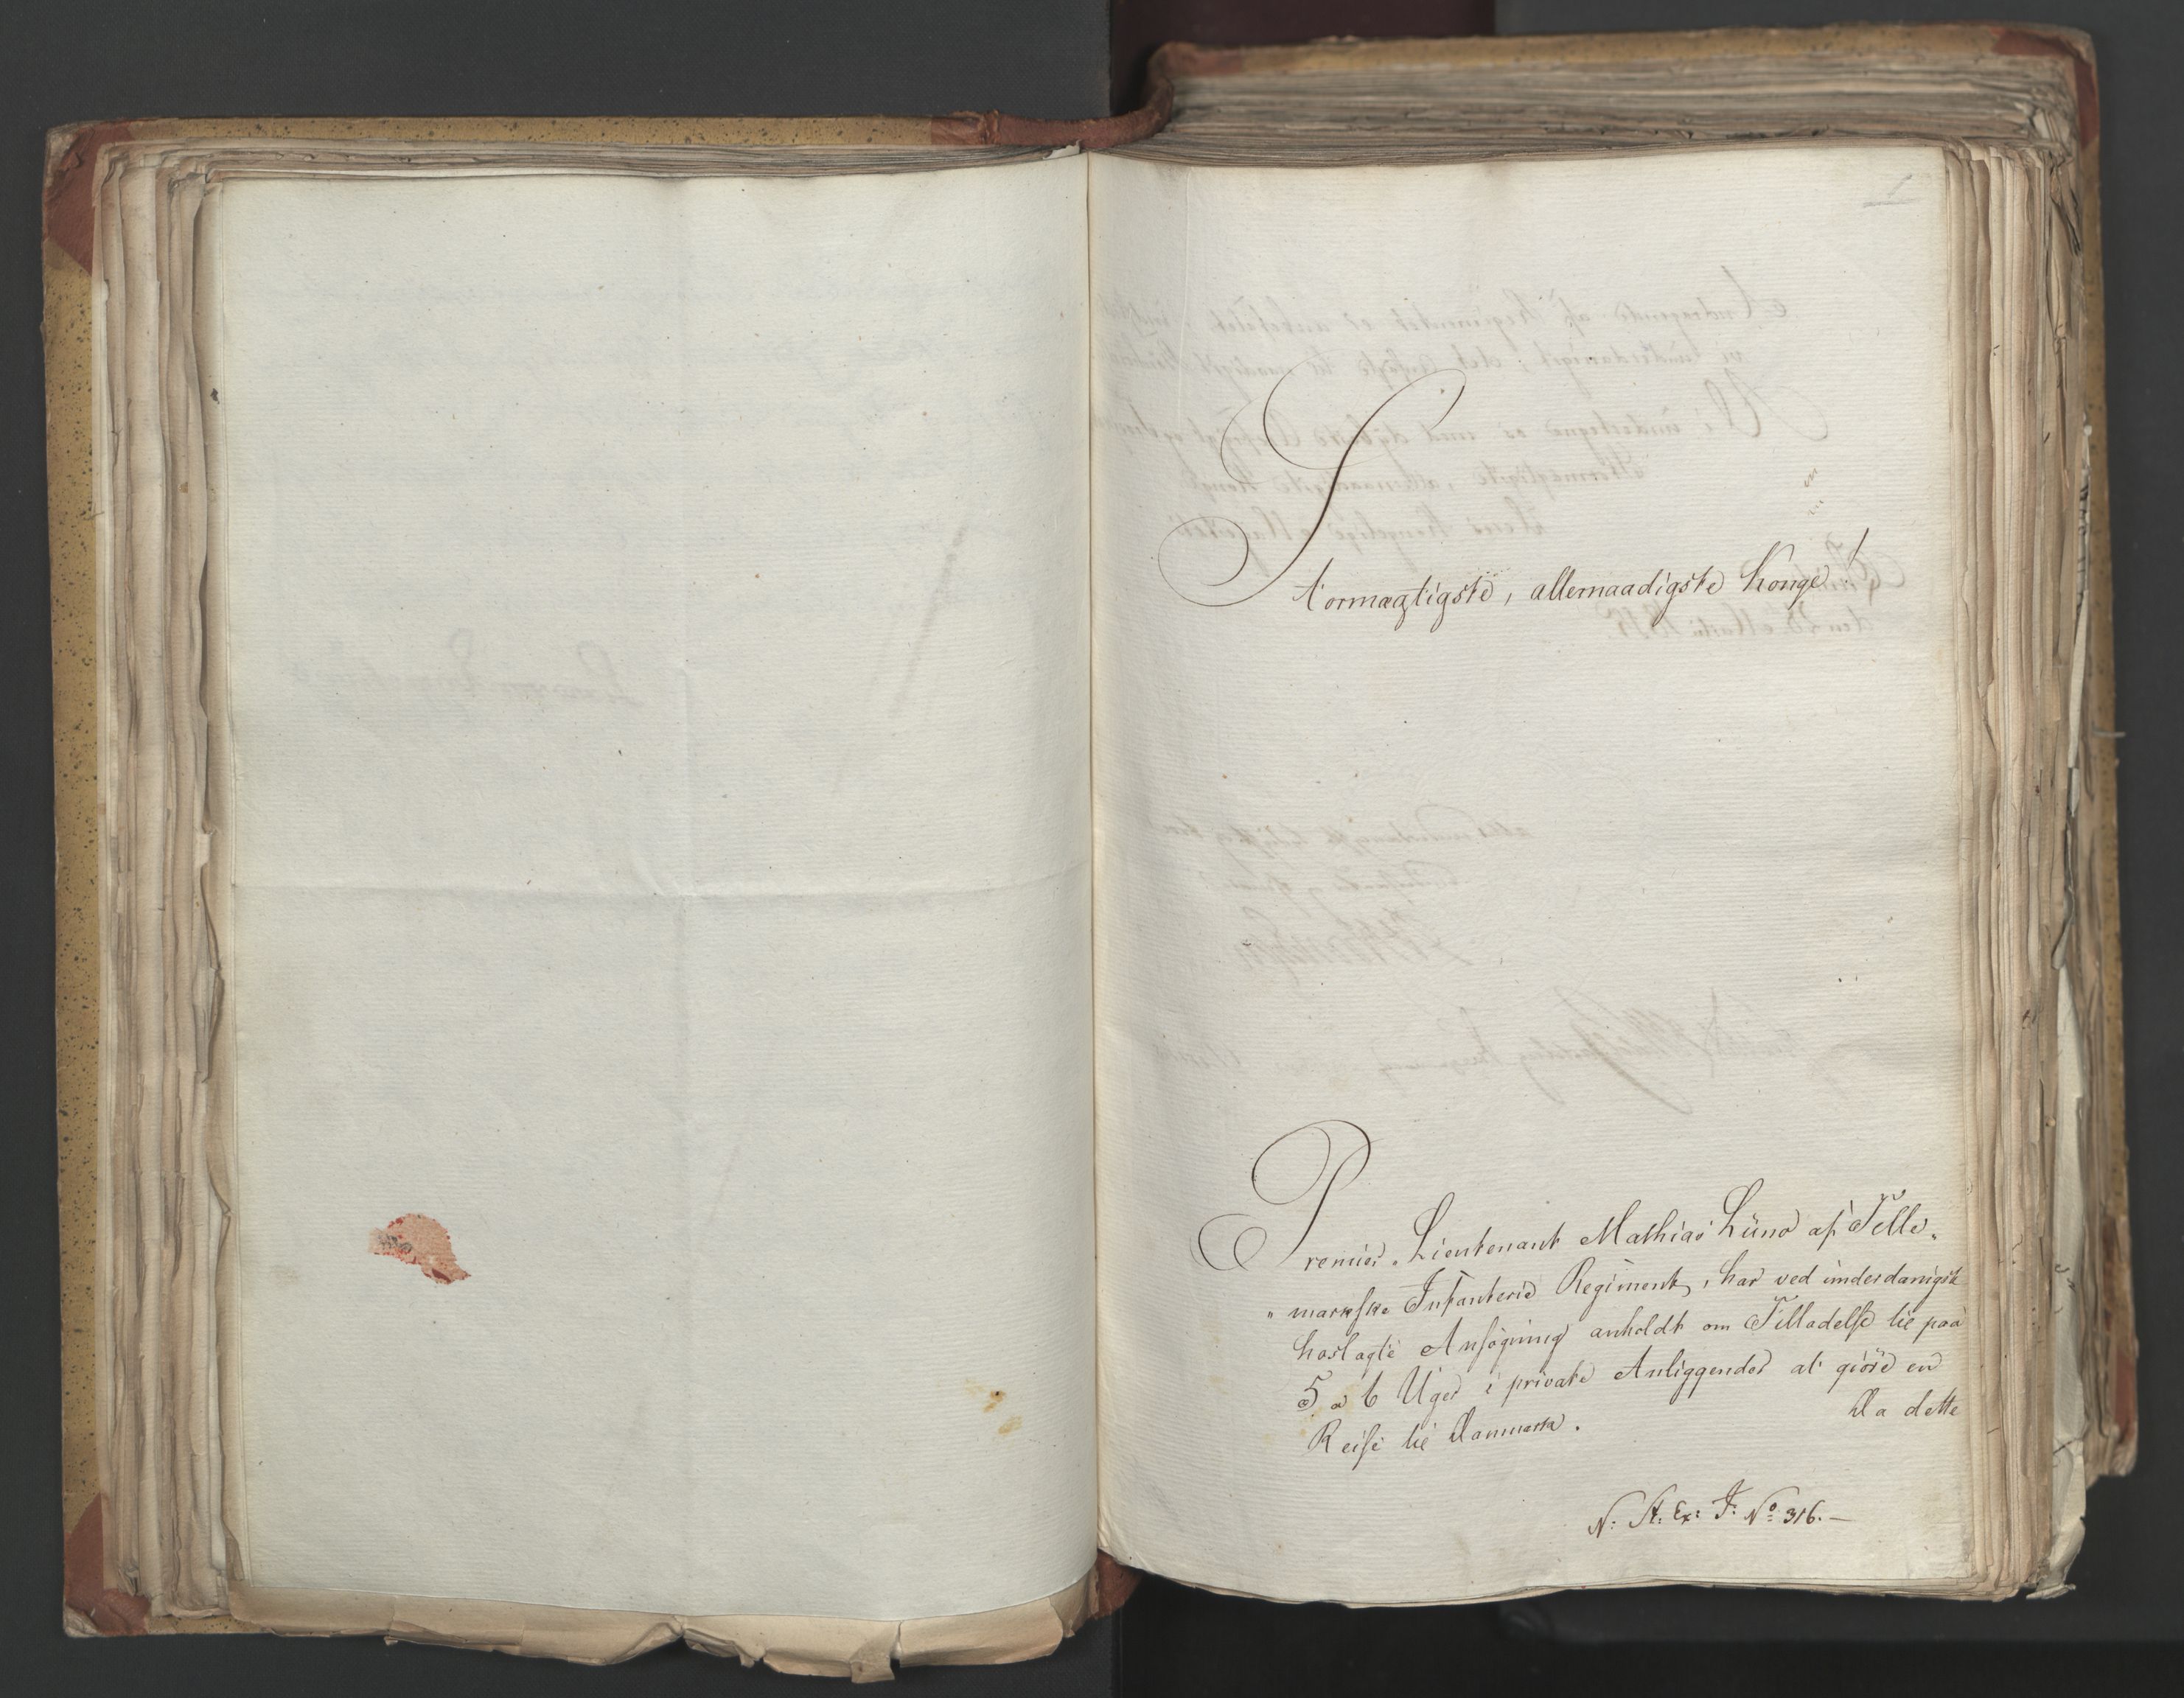 1
Stormægtigste, allernaadigste Konge!
Premier-Lieutenant Mathias Lund af Telle-
"markske Infanterie Regiment, har ved underdanigst
hoslagte Ansøgning anholdt om Tilladelse til paa
5 a 6 Uger i private Anliggender at giöre en
Reise til Danmark.
Da dette
N: St: Ex: J: No: 316.—